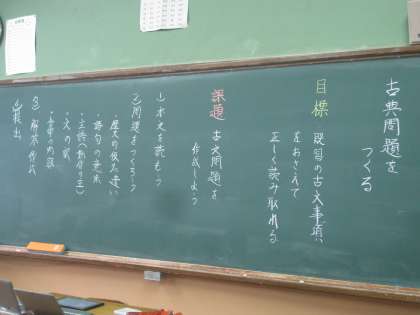 古典問題を
つくる
目標 既習の古文事項
をおさえて
正しく読み取れる
課題 古文問題を
作成しよう
1)本文を読もう
2)問題をつくろう
・歴史的仮名遣い
・語句の意味
・主語(動作の主)
・文の
・文章の内容
3)解答作成
提出